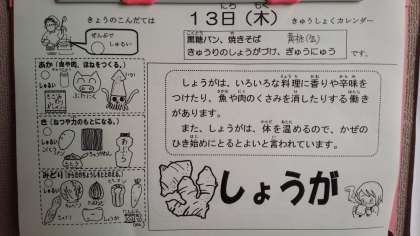 きょうのこんだては
13日（木）
にち もく
きゅうしょくカレンダー
ぜんぶで
しゅるい
黒糖パン、焼きそば
きゅうりのしょうがづけ、ぎゅうにゅう
です。
あか（血や肉、ほねをつくる。）
しゅるい
ぶたにく
き（ねつや力のもとになる。）
しゅるい
あぶら
みどり（からだのちょうしをととのえる。）
しゅるい
しょうがは、いろいろな料理に香りや辛味を
つけたり、魚や肉のくさみを消したりする働き
があります。
また、しょうがは、体を温めるので、かぜの
ひき始めにとるとよいと言われています。
しょうが